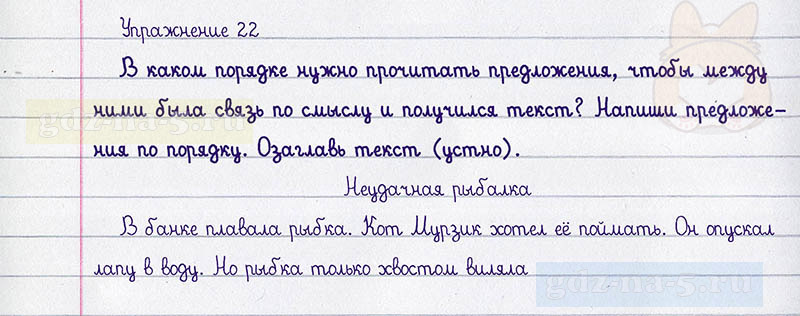 Упражнение 22
В каком порядке нужно прочитать предложения, чтобы между
ними была связь по смыслу и получился текст? Напиши предложе-
ния по порядку. Озаглавь текст (устно).
Неудачная рыбалка
В банке плавала рыбка. Кот Мурзик хотел её поймать. Он опускал
лапу в воду. Но рыбка только хвостом виляла
gdz-na-5.ru
gdz-na-5.ru